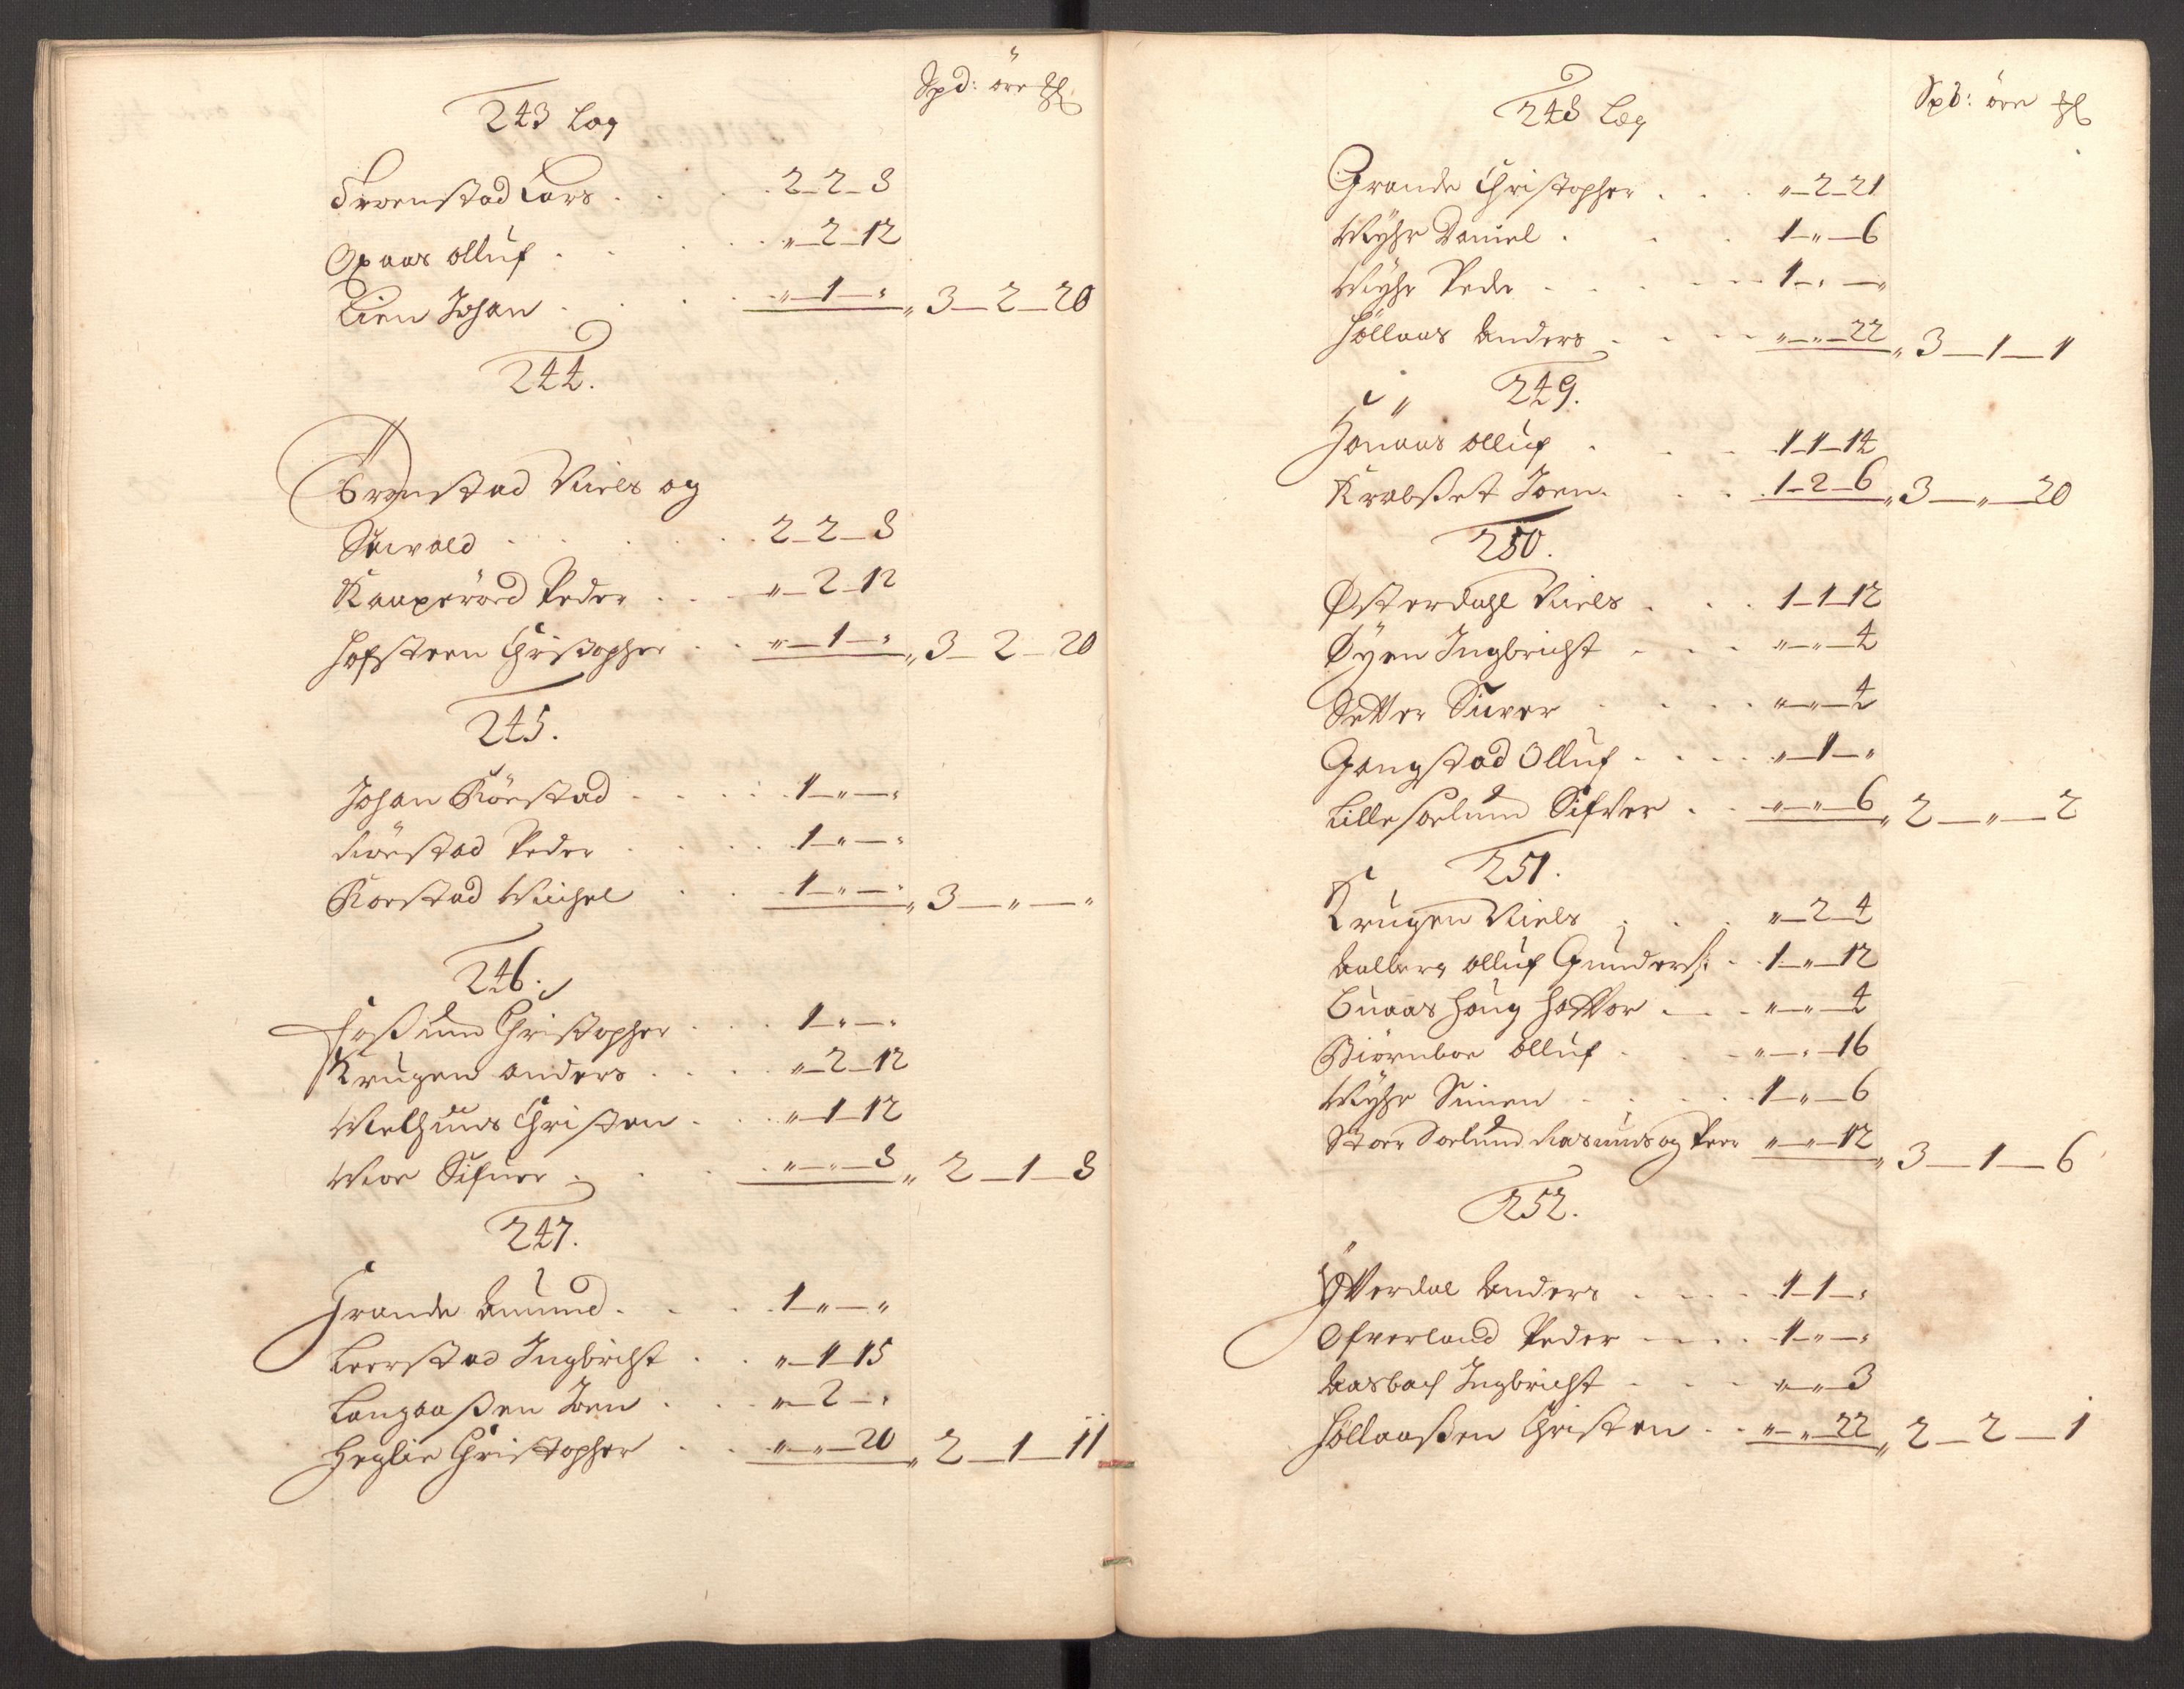 Spd: öre
243 Læg
Svenstad Lars . . . 2_2_8
Opaas olluf . . . „_2_12
Lien Johan . . . „_1_„ „3_2_20
244.
Brunstad Niels og
Siwald . . . 2_2_8
Kaaperöed Peder . . . „_2_12
Hofsteen Christopher . . „_1_„ „3_2_20
245.
Johan Röestad . . . 1_„_„
Röestad Peder . . . 1_„_„
Roestad Michel . . . 1_„_„ „3_„_„
246.
Foßum Christopher . . . 1_„_„
Krugen anders . . . „_2_12
Melhuus Christen . . . „_1_12
Moe Sifuer . . . „_„_8 „2_1_8
247.
Grande Amund . . . 1_„_„
Leerstad Ingbricht . . „_1_15
Langaaßen Joen . . . „_2_„
Heglie Christopher . . „_„_20 „2_1_11
Spd: öre
248 Læg
Grande Christopher . . . „_2_21
Myhr Daniel . . . 1_„_6
Myhr Peder . . . 1_„_„
Höllaas Anders . . . „_„_22 „3_1_1
249.
Hanaas olluf . . . 1_1_14
Krabset Joen . . . 1_2_6 „3_„_20
250.
Østerdahl Niels . . . 1_1_12
Øyen Ingbricht . . . „_„_4
Setter Siver . . . „_„_4
Gangstad Olluf . . . „_1_„
Lille Solum Sifver . . „_„_6 „2_„_2
251.
Krugen Niels . . . „_2_4
Aalberg olluf Gunders: . 1_„_12
Buaas Houg Hattor . . . „_„_4
Biörnboe olluf . . . „_„_16
Myhr Simen . . . 1_„_6
Stoer Soelum Rasmus og Peer „_„_12 „3_1_6
252.
Ytterdal Anders . . . 1_1_„
Ofverland Peder . . . 1_„_„
Aasbach Ingbricht . . . „_„_3
Höllaaßen Christen . . „_„_22 „2_2_1